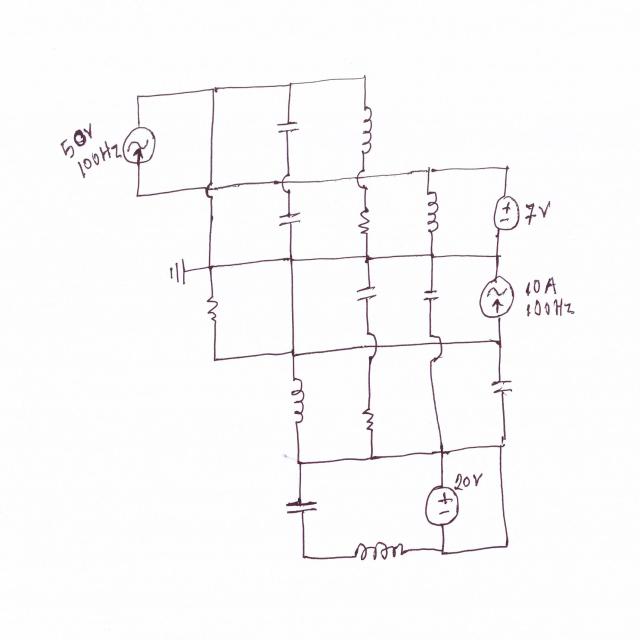 50V
100Hz
7V
10A
100Hz
20V